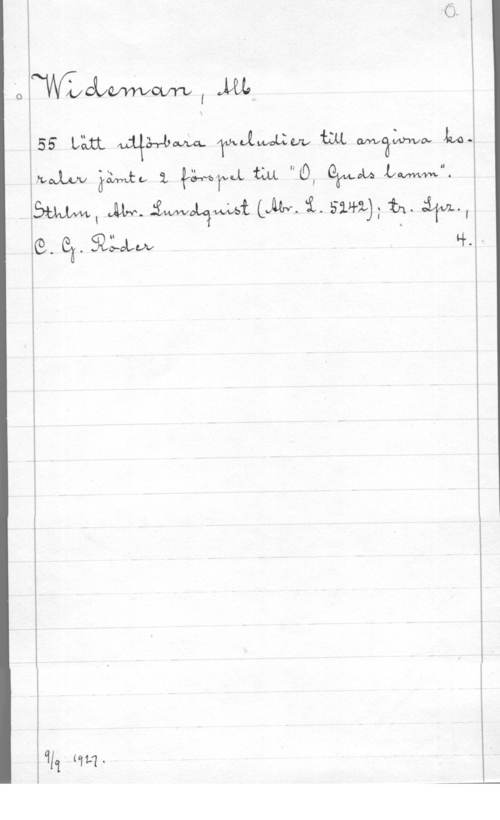 O.
Wideman, Alb.
55 Lätt utförbara preludier till angivna ko-
raler jämte 2 förspel till "O, Guds Lamm".
Sthlm, Abr. Lundquist (Abr. L. 5242); tr. Lpz.,
C. G. Röder 4.
9/9 1927.